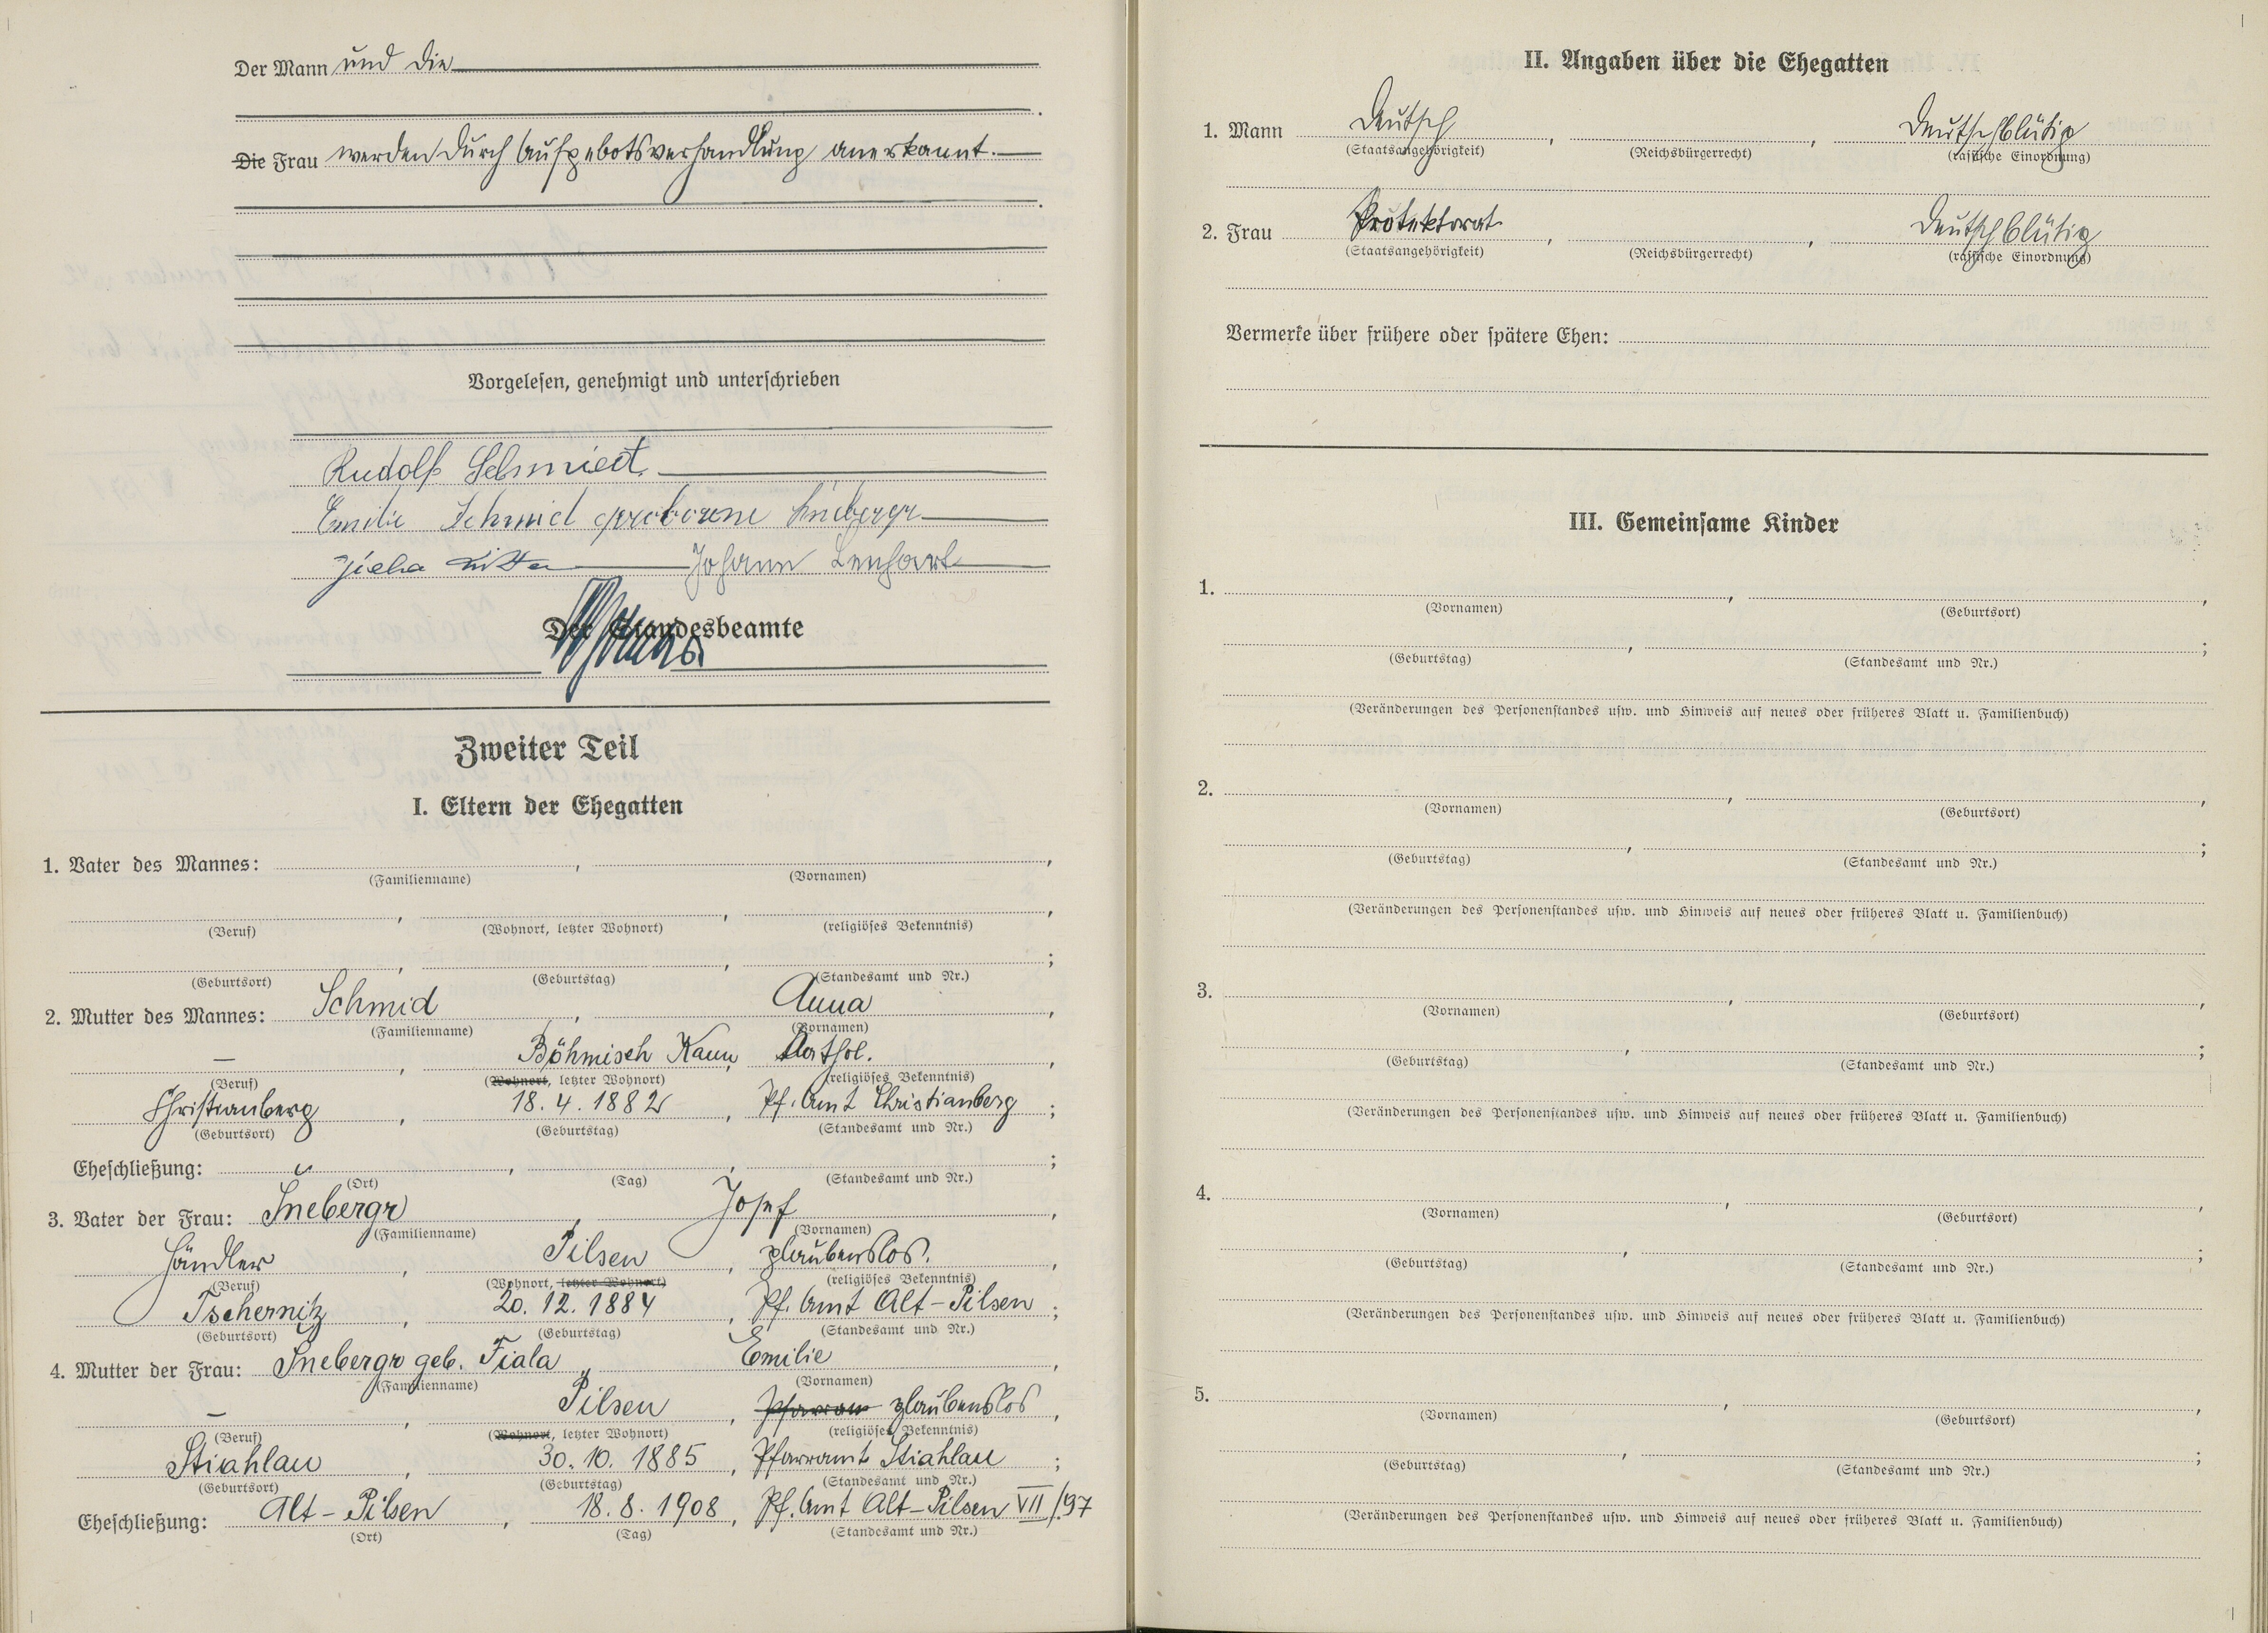 Der Mann und die
Die Frau werden durch Aufgebotsverhandlung anerkannt.
Vorgelesen, genehmigt und unterschrieben
Rudolf Schmied
Emilie Schmid geborene Šnebergr
Johann Lenhart
Der Standesbeamte
Zweiter Teil
I. Eltern der Ehegatten
1. Vater des Mannes: , ,
(Familienname) (Vornamen)
, , ,
(Beruf) (Wohnort, letzter Wohnort) (religiöses Bekenntnis)
, , ;
(Geburtsort) (Geburtstag) (Standesamt und Nr.)
2. Mutter des Mannes: Schmid , Anna ,
(Familienname) (Vornamen)
— , Böhmisch Kann, Kathol. ,
(Beruf) (Wohnort, letzter Wohnort) (religiöses Bekenntnis)
Christianberg , 18. 4. 1882 , Pf. Amt Christianberg ;
(Geburtsort) (Geburtstag) (Standesamt und Nr.)
Eheschließung: , , ;
(Ort) (Tag) (Standesamt und Nr.)
3. Vater der Frau: Šnebergr , Josef ,
(Familienname) (Vornamen)
Händler , Pilsen , glaubenslos. ,
(Beruf) (Wohnort, letzter Wohnort) (religiöses Bekenntnis)
Tschernitz , 20. 12. 1884 , Pf. Amt Alt-Pilsen ;
(Geburtsort) (Geburtstag) (Standesamt und Nr.)
4. Mutter der Frau: Šnebergr geb. Fiala , Emilie ,
(Familienname) (Vornamen)
— , Pilsen , glaubenslos ,
(Beruf) (Wohnort, letzter Wohnort) (religiöses Bekenntnis)
Stiahlau , 30. 10. 1885 , Pfarramt Stiahlau ;
(Geburtsort) (Geburtstag) (Standesamt und Nr.)
Eheschließung: Alt-Pilsen , 18. 8. 1908 , Pf. Amt Alt-Pilsen VII/97
(Ort) (Tag) (Standesamt und Nr.)
II. Angaben über die Ehegatten
1. Mann Deutsch , , Deutschblütig
(Staatsangehörigkeit) (Reichsbürgerrecht) (rassische Einordnung)
2. Frau Protektorat , , Deutschblütig
(Staatsangehörigkeit) (Reichsbürgerrecht) (rassische Einordnung)
Vermerke über frühere oder spätere Ehen:
III. Gemeinsame Kinder
1. , ,
(Vornamen) (Geburtsort)
, ;
(Geburtstag) (Standesamt und Nr.)
(Veränderungen des Personenstandes usw. und Hinweis auf neues oder früheres Blatt u. Familienbuch)
2. , ,
(Vornamen) (Geburtsort)
, ;
(Geburtstag) (Standesamt und Nr.)
(Veränderungen des Personenstandes usw. und Hinweis auf neues oder früheres Blatt u. Familienbuch)
3. , ,
(Vornamen) (Geburtsort)
, ;
(Geburtstag) (Standesamt und Nr.)
(Veränderungen des Personenstandes usw. und Hinweis auf neues oder früheres Blatt u. Familienbuch)
4. , ,
(Vornamen) (Geburtsort)
, ;
(Geburtstag) (Standesamt und Nr.)
(Veränderungen des Personenstandes usw. und Hinweis auf neues oder früheres Blatt u. Familienbuch)
5. , ,
(Vornamen) (Geburtsort)
, ;
(Geburtstag) (Standesamt und Nr.)
(Veränderungen des Personenstandes usw. und Hinweis auf neues oder früheres Blatt u. Familienbuch)